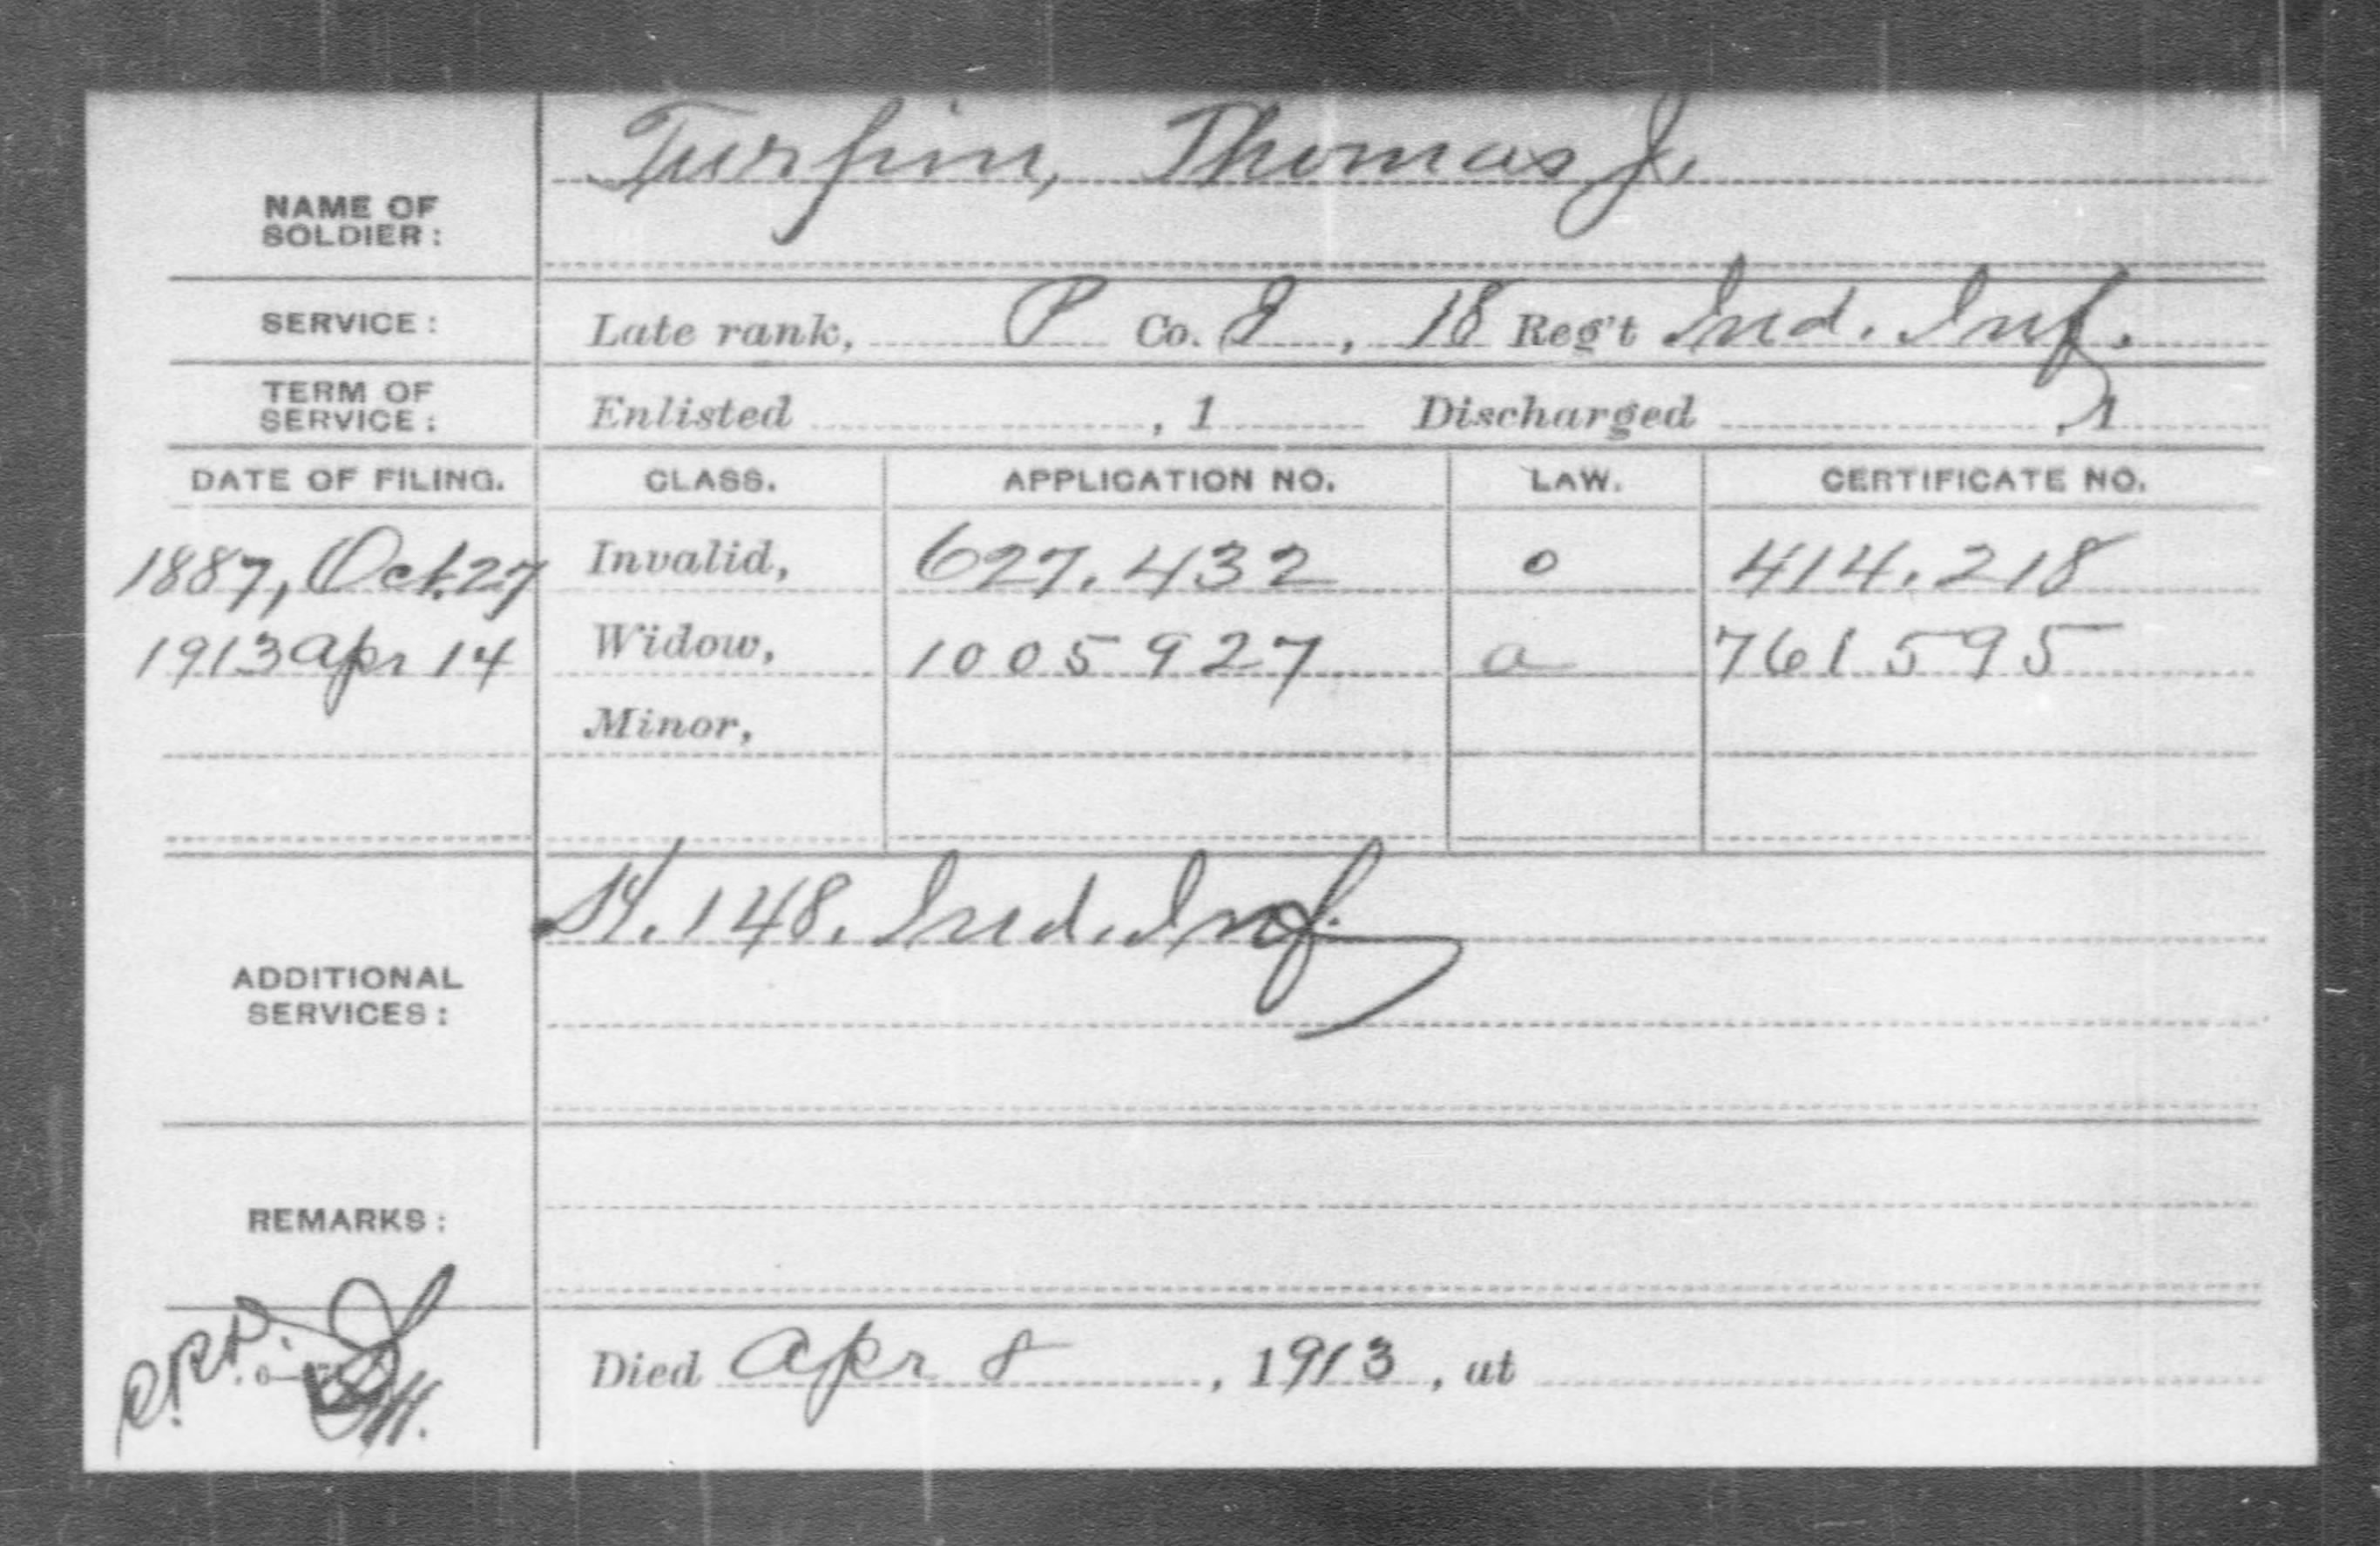 Turpin, Thomas J.
NAME OF
SOLDIER:
SERVICE: Late rank, P Co. I, 18 Reg't Ind. Inf.
TERM OF
SERVICE: Enlisted , 1 Discharged , 1
DATE OF FILING. CLASS. APPLICATION NO. LAW. CERTIFICATE NO.
1887, Oct. 27 Invalid, 627.432 o 414.218
1913 Apr 14 Widow, 1005927 a 761595
Minor,
148. Ind. Inf.
ADDITIONAL
SERVICES:
REMARKS:
Died Apr 8, 1913, at